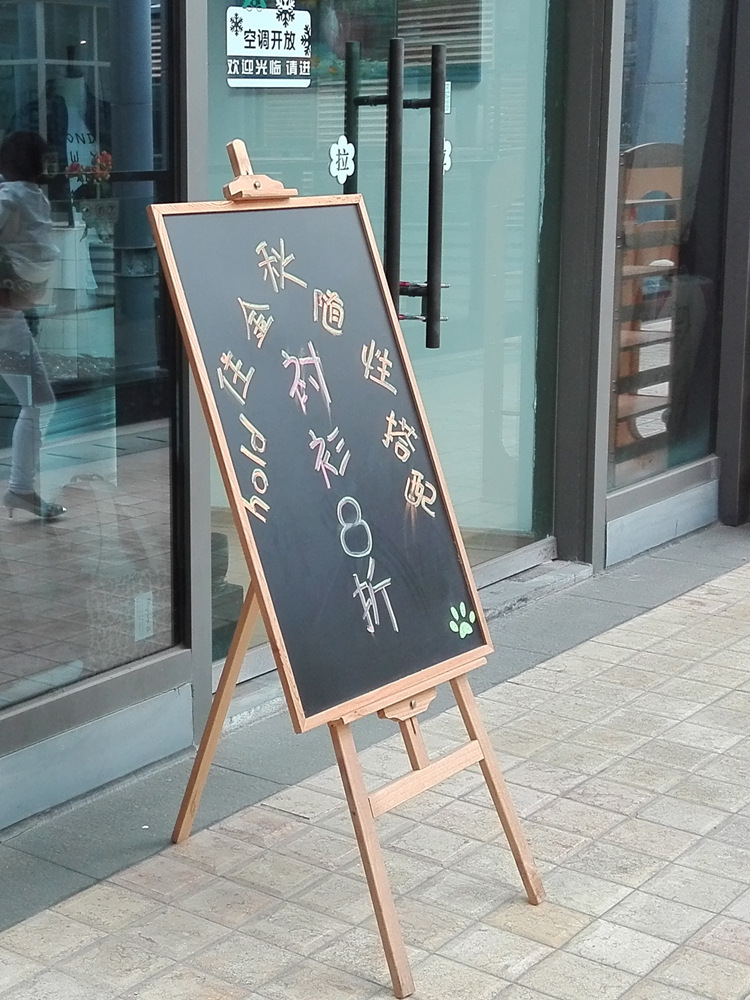 空调开放
欢迎光临 请进
拉
hold住金秋随性搭配
衬衫
8折